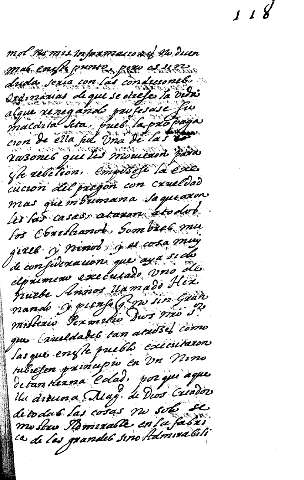 118
mol. Ha mis informaciones no dicen
mas en este punto, pero es sin
duda seria con las condiciones
ordinarias de que se diesse la vida
al que renegando professase su
maldita seta, pues la propaga
cion de ella fue una de las
razones que les movieron para
este rebelion. Empeçose la exe
cucion del pregon con crueldad
mas que inhumana saquearon
les las casas, ataron a todos
los Christianos, hombres mu
geres y Niños, y es cosa muy
de consideracion que aya sido
el primero executado uno de
nuebe Años llamado Her
nando y pienso q no sin gran
misterio Permitio Dios nro Sr
que Crueldades tan atroces como
las que en este pueblo executaron
tubiesen principio en un Niño
de tan tierna Edad, porque aque
lla divina Magd. de Dios Criador
de todas las cosas no solo se
mostro Admirable en la fabri
ca de los grandes sino Admirabili